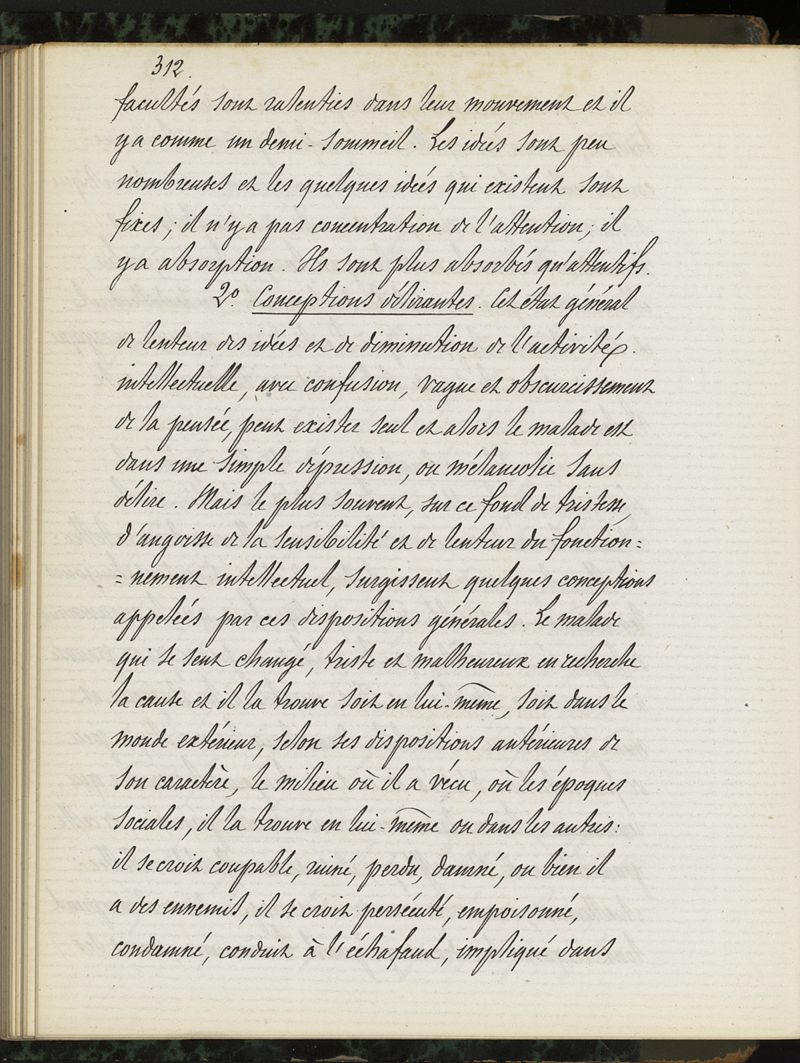 312.
facultés sont ralenties dans leur mouvement et il
y a comme un demi-sommeil. Les idées sont peu
nombreuses et les quelques idées qui existent sont
fixes ; il n'y a pas concentration de l'attention ; il
y a absorption. Ils sont plus absorbés qu'attentifs.
2º. Conceptions délirantes. Cet état général
de lenteur des idées et de diminution de l'activité
intellectuelle, avec confusion, vague et obscurcissement
de la pensée, peut exister seul et alors le malade est
dans une simple dépression, ou mélancolie sans
délire. Mais le plus souvent, sur ce fond de tristesse,
d'angoisse de la sensibilité et de lenteur du fonction=
=nement intellectuel, surgissent quelques conceptions
appelées par ces dispositions générales. Le malade
qui se sent changé, triste et malheureux en recherche
la cause et il la trouve soit en lui-même, soit dans le
monde extérieur, selon ses dispositions antérieures de
son caractère, le milieu où il a vécu, où les époques
sociales, il la trouve en lui-même ou dans les autres :
il se croit coupable, ruiné, perdu, damné, ou bien il
a des ennemis, il se croit persécuté, empoisonné,
condamné, conduit à l'échafaud, impliqué dans